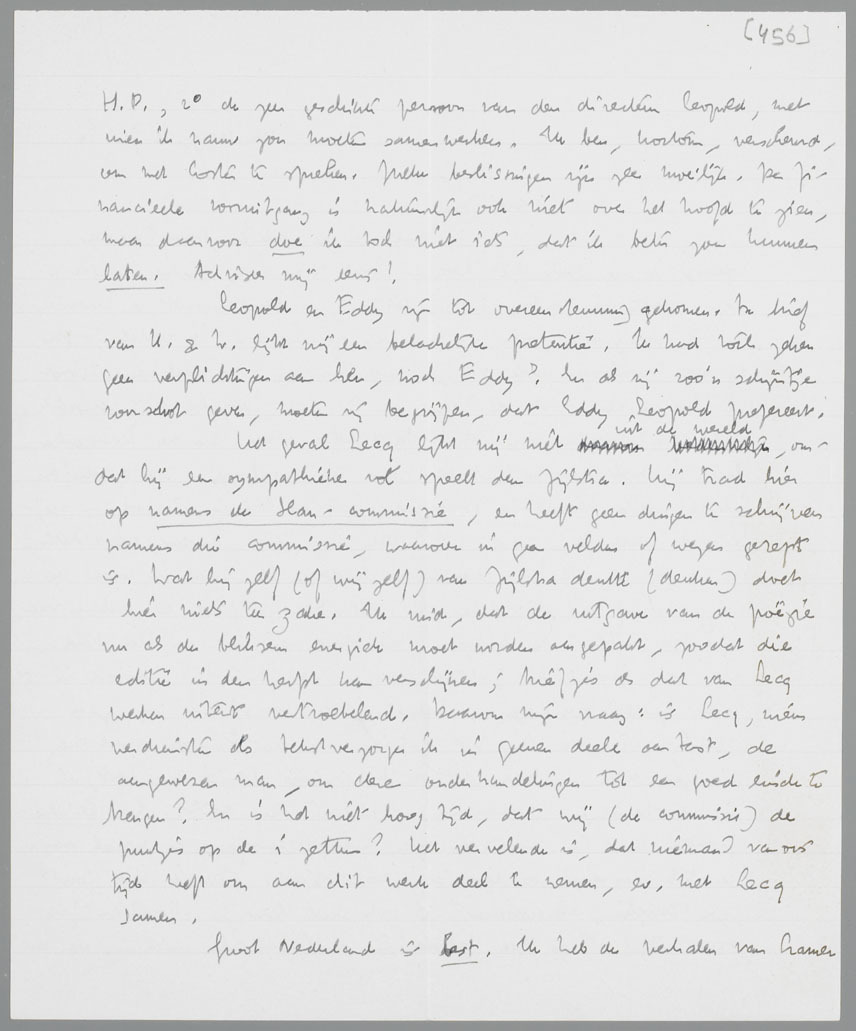 [456]
H.P., 2° de zeer geschikte persoon van den directeur Leopold, met
wien ik nauw zou moeten samenwerken. Ik ben, kortom, verscheurd,
om met Costa te spreken. Zulke beslissingen zijn zeer moeilijk. De fi-
nancieele vooruitgang is natuurlijk ook niet over het hoofd te zien,
maar daarvoor doe ik toch niet iets, dat ik beter zou kunnen
laten. Adviseer mij eens!
Leopold en Eddy zijn tot overeenstemming gekomen. De brief
van K. & W. lijkt mij een belachelijke pretentie. Ik had toch zeker
geen verplichtingen aan hen, noch Eddy? En als zij zoo'n schijntje
voorschot geven, moeten zij begrijpen, dat Eddy Leopold prefereert.
Het geval Lecq lijkt mij niet uit de wereld, om-
dat hij een sympathieker rol speelt dan Zijlstra. Hij trad hier
op namens de Slau-commissie, en heeft geen dingen te schrijven
namens die commissie, waarover in geen velden of wegen gerept
is. Wat hij zelf (of wij zelf) van Zijlstra denkt (denken) doet
hier niets ter zake. Ik vind, dat de uitgave van de poëzie
nu als de bliksem energiek moet worden aangepakt, zoodat die
editie in den herfst kan verschijnen; briefjes als dat van Lecq
werken uiterst vertroebelend. Daarom mijn vraag: is Lecq, wiens
verdienste als tekstverzorger ik in geenen deele aantast, de
aangewezen man, om deze onderhandelingen tot een goed einde te
brengen? En is het niet hoog tijd, dat wij (de commissie) de
puntjes op de i zetten? Het vervelende is, dat niemand van ons
tijd heeft om aan dit werk deel te nemen, ev. met Lecq
samen.
Groot Nederland is best. Ik heb de verhalen van Cramer